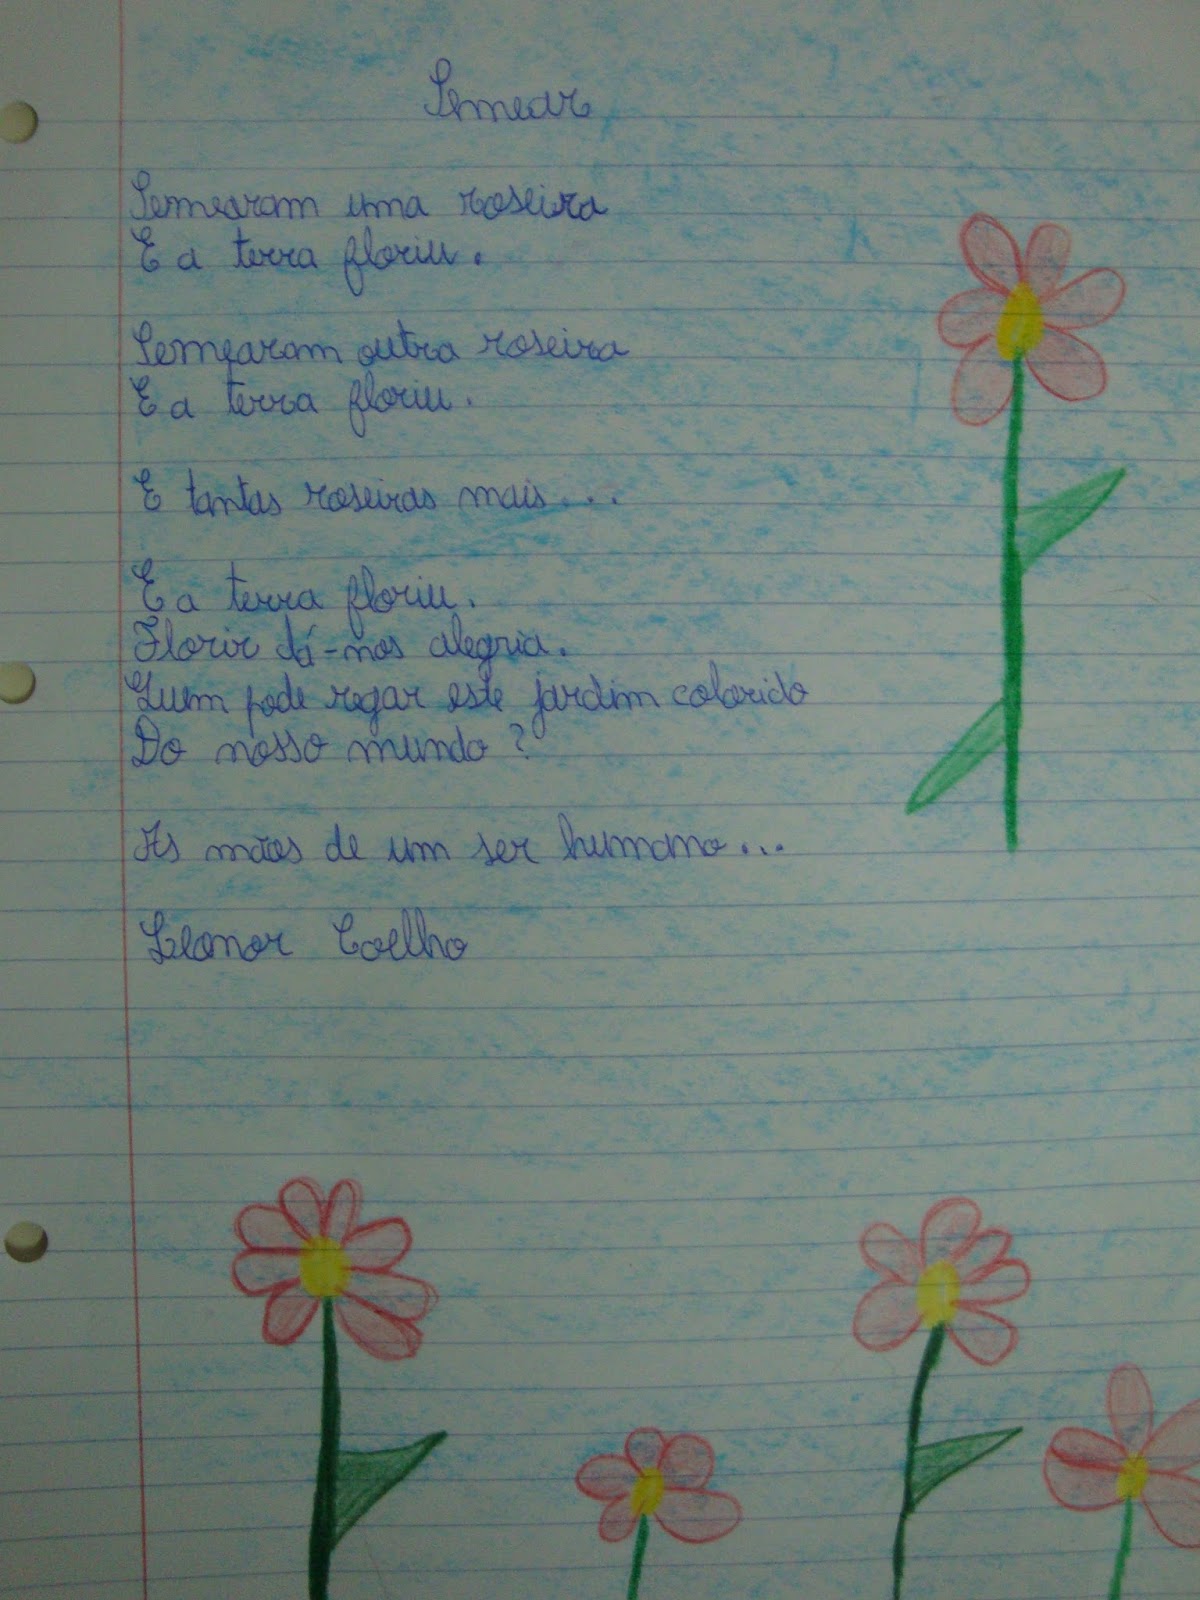 Semear
Semearam uma roseira
E a terra floriu.
Semearam outra roseira
E a terra floriu.
E tantas roseiras mais...
E a terra floriu.
Florir dá-nos alegria.
Quem pode regar este jardim colorido
Do nosso mundo?
As mãos de um ser humano...
Leonor Coelho